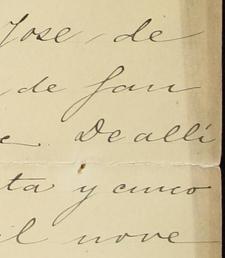 Jose, de
de San
De alli
ta y cinco
il nove